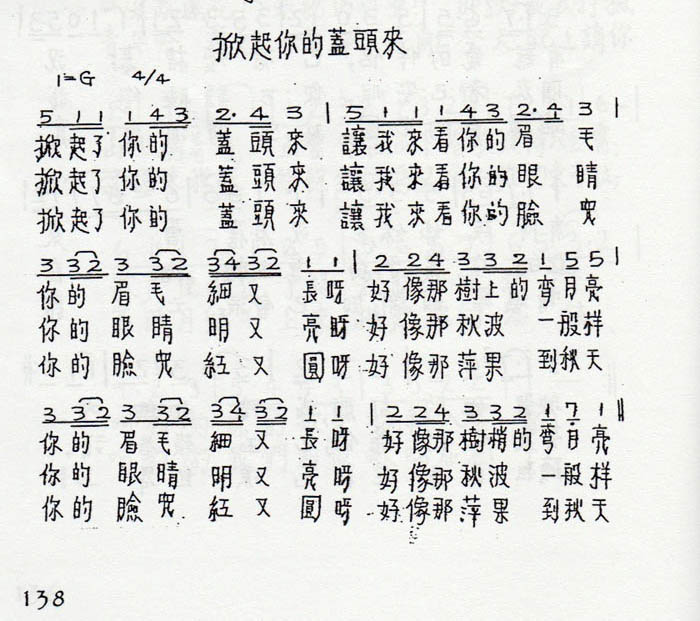 掀起你的蓋頭來
1=G 4/4
5 1 1 1 4 3 2·4 3 | 5 1 1 1 4 3 2·4 3 |
掀起了你的 蓋頭來 讓我來看你的眉毛
掀起了你的 蓋頭來 讓我來看你的眼睛
掀起了你的 蓋頭來 讓我來看你的臉兒
3 32 3 32 34 32 1 1 | 2 24 3 3 2 1 5 5 |
你的眉毛細又長呀好像那樹上的彎月亮
你的眼睛明又亮呀好像那秋波一般样
你的臉兒紅又圓呀好像那萍果到秋天
3 32 3 32 34 32 1 1 | 2 24 3 3 2 1 7 1 ‖
你的眉毛細又長呀好像那樹梢的彎月亮
你的眼睛明又亮呀好像那秋波一般样
你的臉兒紅又圓呀好像那萍果到秋天
138